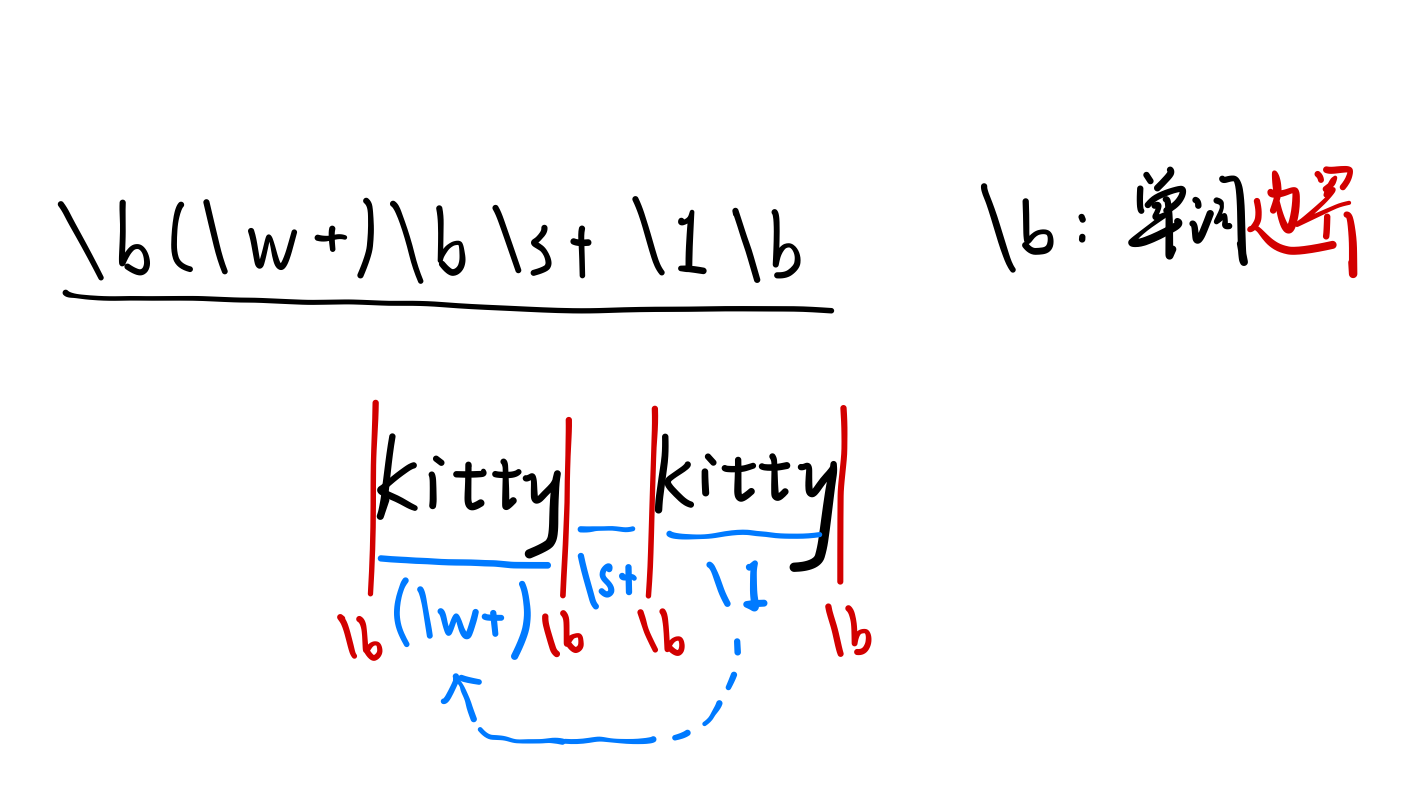 \b(\w+)\b\s+\1\b
\b：单词边界
kitty kitty
\s+ \1
\b (\w+) \b \b \b